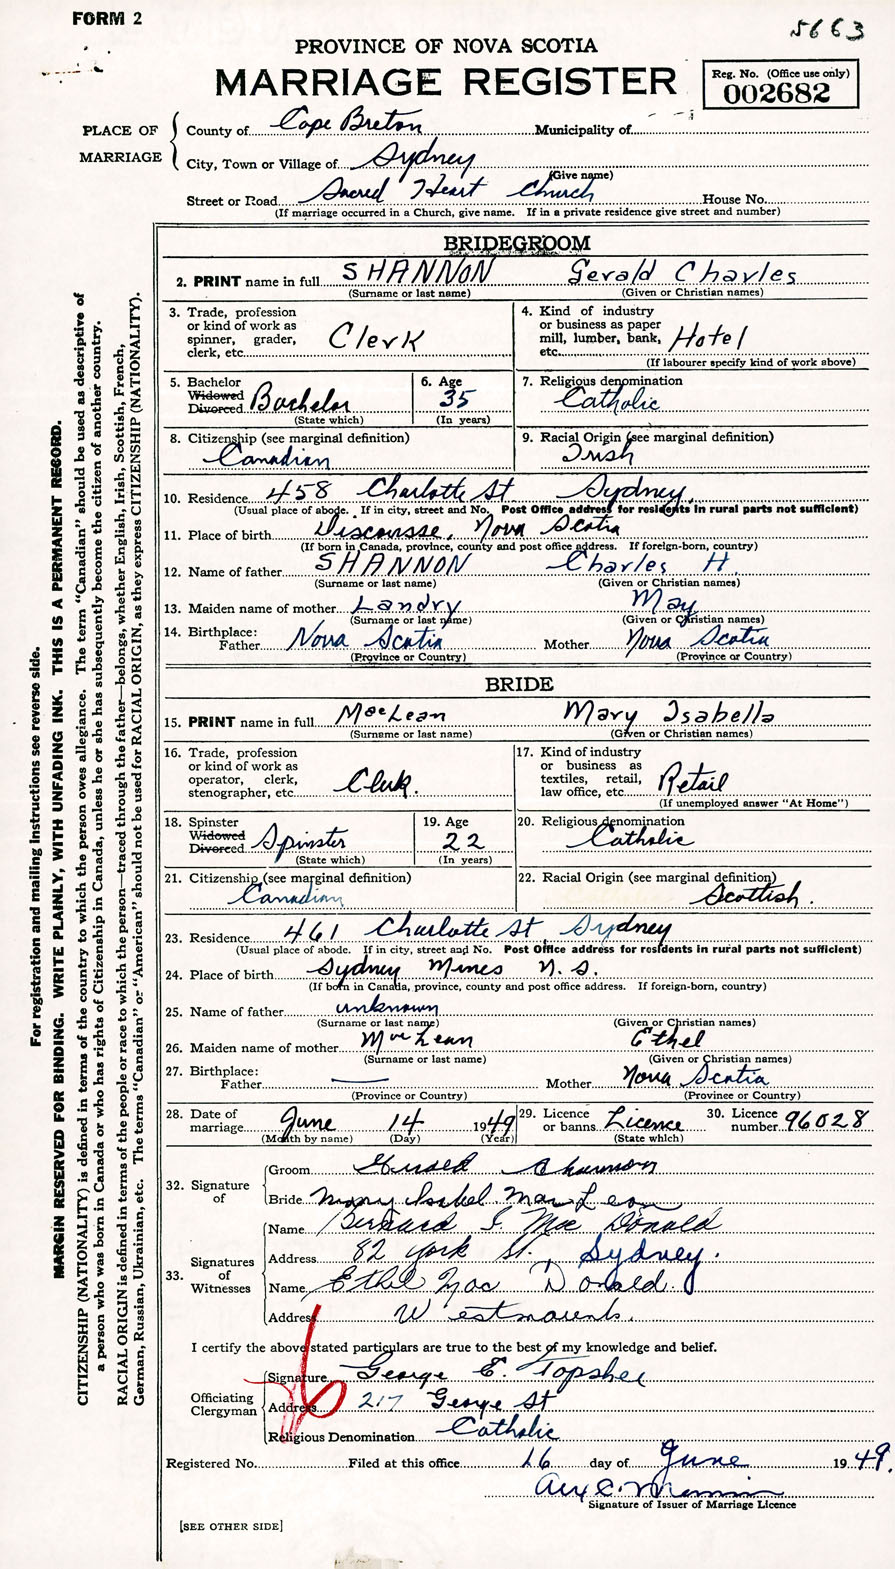 FORM 2
5663
PROVINCE OF NOVA SCOTIA
MARRIAGE REGISTER
Reg. No. (Office use only)
002682
PLACE OF MARRIAGE
County of Cape Breton Municipality of
City, Town or Village of Sydney
(Give name)
Street or Road Sacred Heart Church House No.
(If marriage occurred in a Church, give name. If in a private residence give street and number)
BRIDEGROOM
2. PRINT name in full SHANNON Gerald Charles
(Surname or last name) (Given or Christian names)
3. Trade, profession or kind of work as spinner, grader, clerk, etc. Clerk
4. Kind of industry or business as paper mill, lumber, bank, etc. Hotel
(If labourer specify kind of work above)
5. Bachelor Widowed Divorced Bachelor
(State which)
6. Age 35
(In years)
7. Religious denomination
Catholic
8. Citizenship (see marginal definition)
Canadian
9. Racial Origin (see marginal definition)
Irish
10. Residence 458 Charlotte St Sydney.
(Usual place of abode. If in city, street and No. Post Office address for residents in rural parts not sufficient)
11. Place of birth Discousse, Nova Scotia
(If born in Canada, province, county and post office address. If foreign-born, country)
12. Name of father SHANNON Charles H.
(Surname or last name) (Given or Christian names)
13. Maiden name of mother Landry May
(Surname or last name) (Given or Christian names)
14. Birthplace:
Father Nova Scotia Mother Nova Scotia
(Province or Country) (Province or Country)
BRIDE
15. PRINT name in full MacLean Mary Isabella
(Surname or last name) (Given or Christian names)
16. Trade, profession or kind of work as operator, clerk, stenographer, etc. Clerk.
17. Kind of industry or business as textiles, retail, law office, etc. Retail
(If unemployed answer "At Home")
18. Spinster Widowed Divorced Spinster
(State which)
19. Age 22
(In years)
20. Religious denomination
Catholic
21. Citizenship (see marginal definition)
Canadian
22. Racial Origin (see marginal definition)
Scottish.
23. Residence 461 Charlotte St Sydney
(Usual place of abode. If in city, street and No. Post Office address for residents in rural parts not sufficient)
24. Place of birth Sydney Mines N.S.
(If born in Canada, province, county and post office address. If foreign-born, country)
25. Name of father unknown
(Surname or last name) (Given or Christian names)
26. Maiden name of mother MacLean Ethel
(Surname or last name) (Given or Christian names)
27. Birthplace:
Father — Mother Nova Scotia
(Province or Country) (Province or Country)
28. Date of marriage June 14 1949
(Month by name) (Day) (Year)
29. Licence or banns Licence
(State which)
30. Licence number 96028
32. Signature of
Groom Gerald Shannon
Bride Mary Isabel MacLean
33. Signatures of Witnesses
Name Bernard I. MacDonald
Address 82 York St. Sydney.
Name Ethel MacDonald.
Address Westmount.
I certify the above stated particulars are true to the best of my knowledge and belief.
Officiating Clergyman
Signature George E. Topshee
Address 217 George St
Religious Denomination Catholic
Registered No. Filed at this office 16 day of June 1949.
Signature of Issuer of Marriage Licence
[SEE OTHER SIDE]
For registration and mailing instructions see reverse side.
MARGIN RESERVED FOR BINDING. WRITE PLAINLY, WITH UNFADING INK. THIS IS A PERMANENT RECORD.
CITIZENSHIP (NATIONALITY) is defined in terms of the country to which the person owes allegiance. The term "Canadian" should be used as descriptive of
a person who was born in Canada or who has rights of Citizenship in Canada, unless he or she has subsequently become the citizen of another country.
RACIAL ORIGIN is defined in terms of the people or race to which the person—traced through the father—belongs, whether English, Irish, Scottish, French,
German, Russian, Ukrainian, etc. The terms "Canadian" or "American" should not be used for RACIAL ORIGIN, as they express CITIZENSHIP (NATIONALITY).